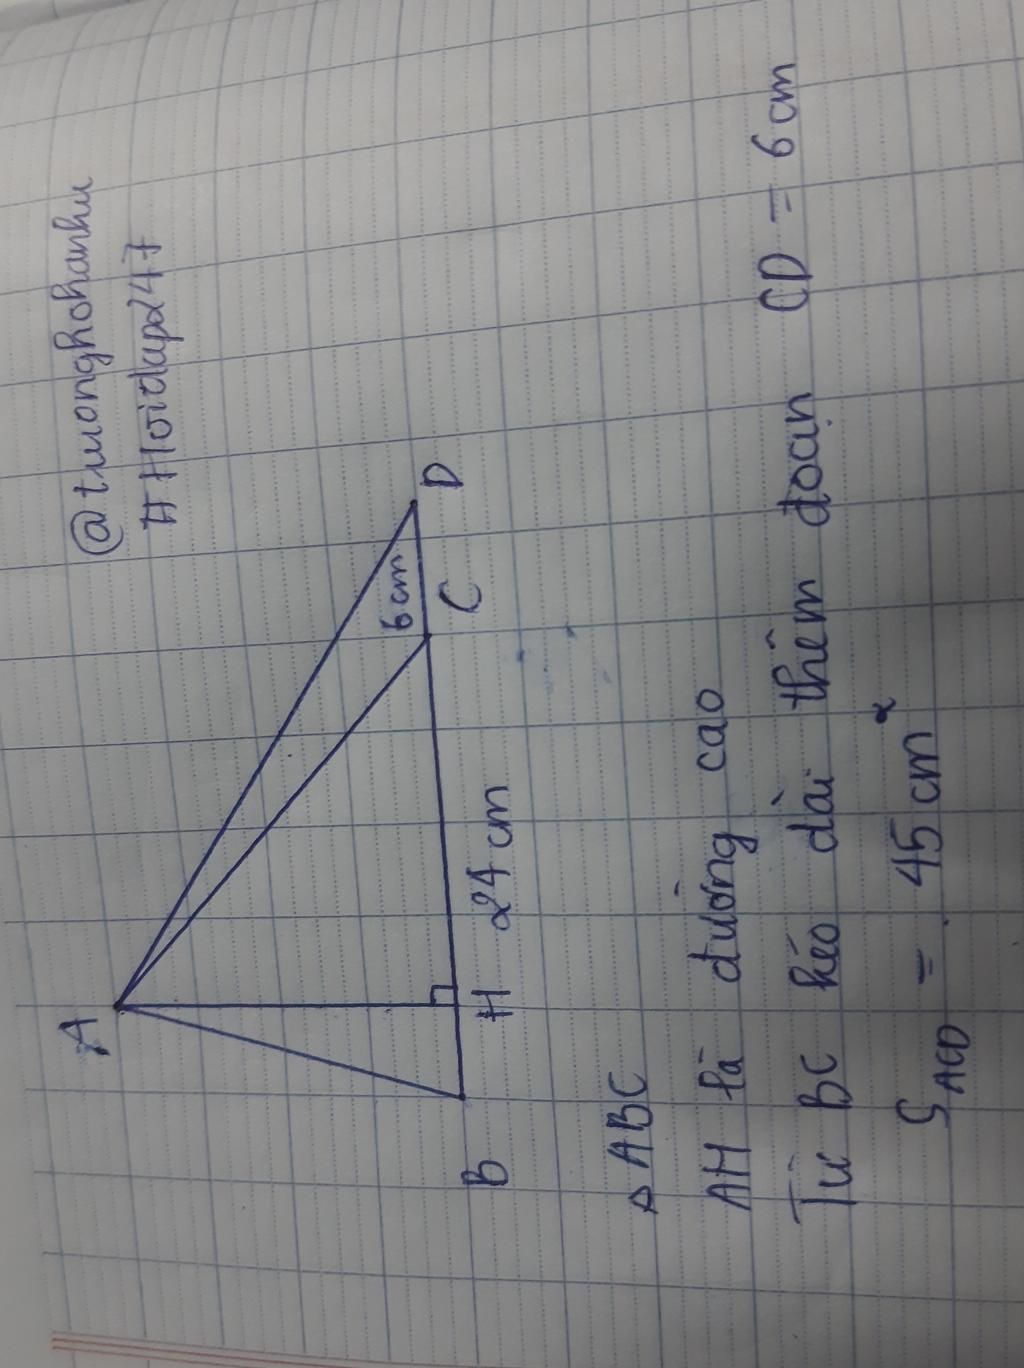 @tuonghohanhu
#Hoidap247
A
6cm
D
B
H
24 cm
C
Δ ABC
AH là đường cao
Từ BC kéo dài thêm đoạn CD = 6 cm
S ACD = 45 cm²